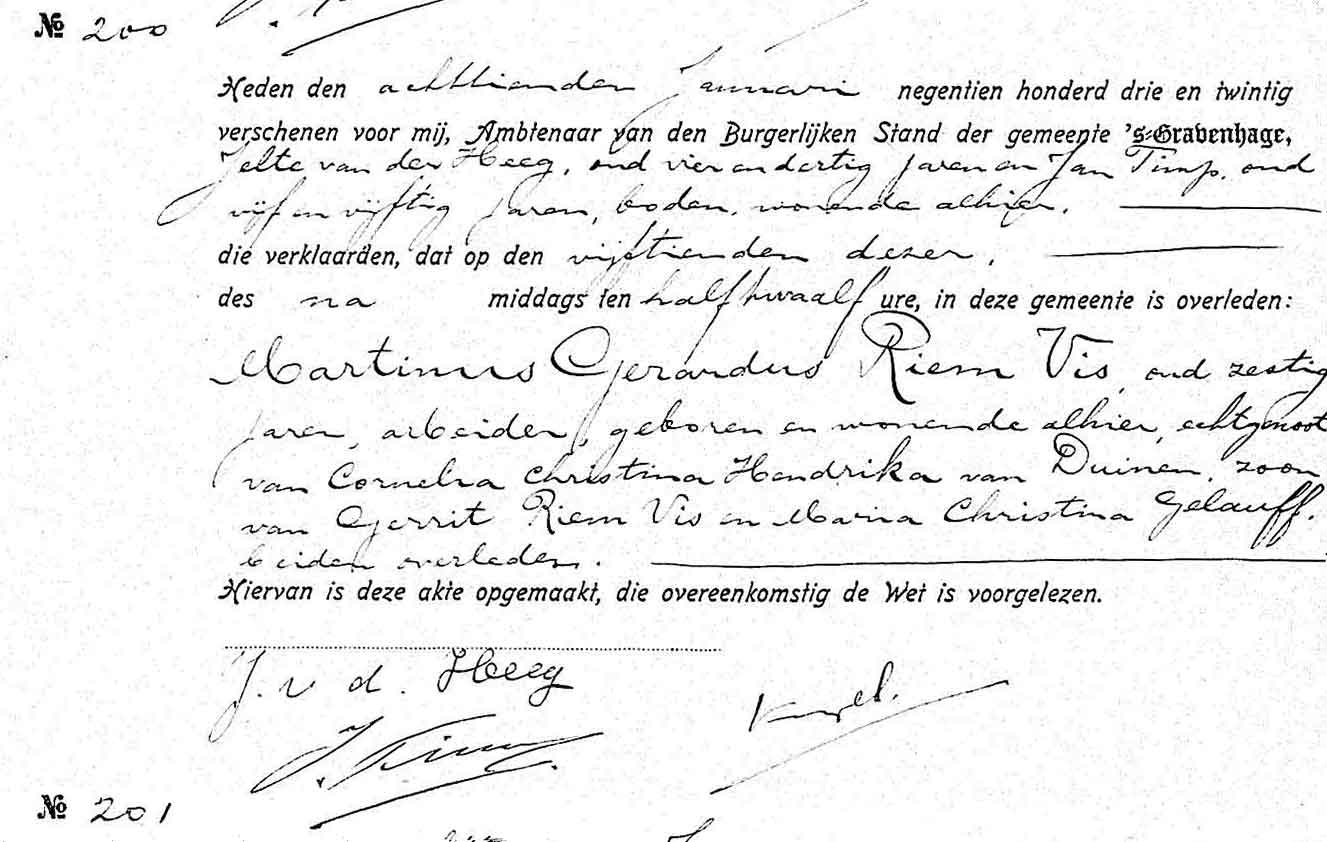 № 200
Heden den achttienden Januari negentien honderd drie en twintig
verschenen voor mij, Ambtenaar van den Burgerlijken Stand der gemeente 's-Gravenhage,
Jelte van der Heeg, oud vier en dertig jaren en Jan Timp, oud
vijf en vijftig jaren, boden, wonende alhier,
die verklaarden, dat op den vijftienden dezer,
des na middags ten half twaalf ure, in deze gemeente is overleden:
Martinus Gerardus Riem Vis, oud zestig
jaren, arbeider, geboren en wonende alhier, echtgenoot
van Cornelia Christina Hendrika van Duinen, zoon
van Gerrit Riem Vis en Maria Christina Gelauff,
beiden overleden.
Hiervan is deze akte opgemaakt, die overeenkomstig de Wet is voorgelezen.
J. v d. Heeg
№ 201